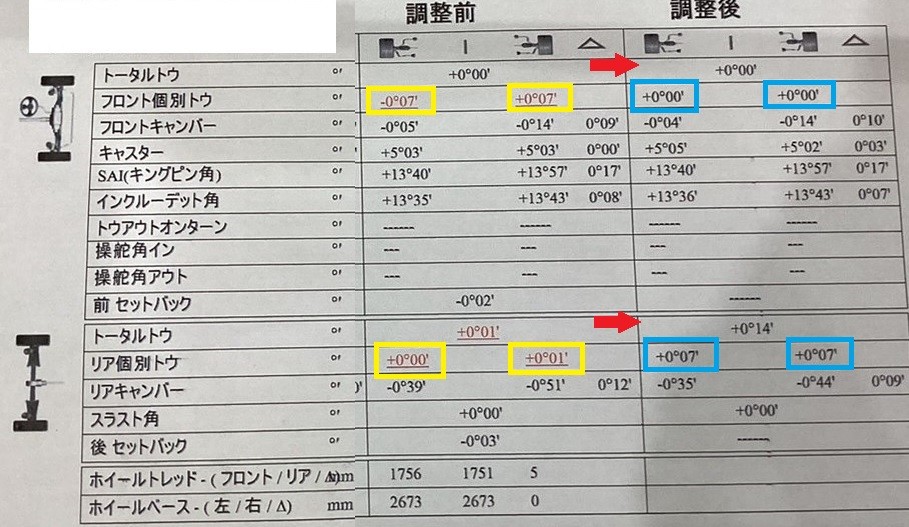 調整前 調整後
トータルトウ o' +0°00' +0°00'
フロント個別トウ o' -0°07' +0°07' +0°00' +0°00'
フロントキャンバー o' -0°05' -0°14' 0°09' -0°04' -0°14' 0°10'
キャスター o' +5°03' +5°03' 0°00' +5°05' +5°02' 0°03'
SAI(キングピン角) o' +13°40' +13°57' 0°17' +13°40' +13°57' 0°17'
インクルーデット角 o' +13°35' +13°43' 0°08' +13°36' +13°43' 0°07'
トウアウトオンターン o' ------ ------ ------ ------
操舵角イン o' --- --- --- ---
操舵角アウト o' --- --- --- ---
前 セットバック o' -0°02' ------
トータルトウ o' +0°01' +0°14'
リア個別トウ o' +0°00' +0°01' +0°07' +0°07'
リアキャンバー o' -0°39' -0°51' 0°12' -0°35' -0°44' 0°09'
スラスト角 o' +0°00' +0°00'
後 セットバック o' -0°03' ------
ホイールトレッド - ( フロント / リア / Δ) mm 1756 1751 5
ホイールベース - ( 左 / 右 / Δ) mm 2673 2673 0